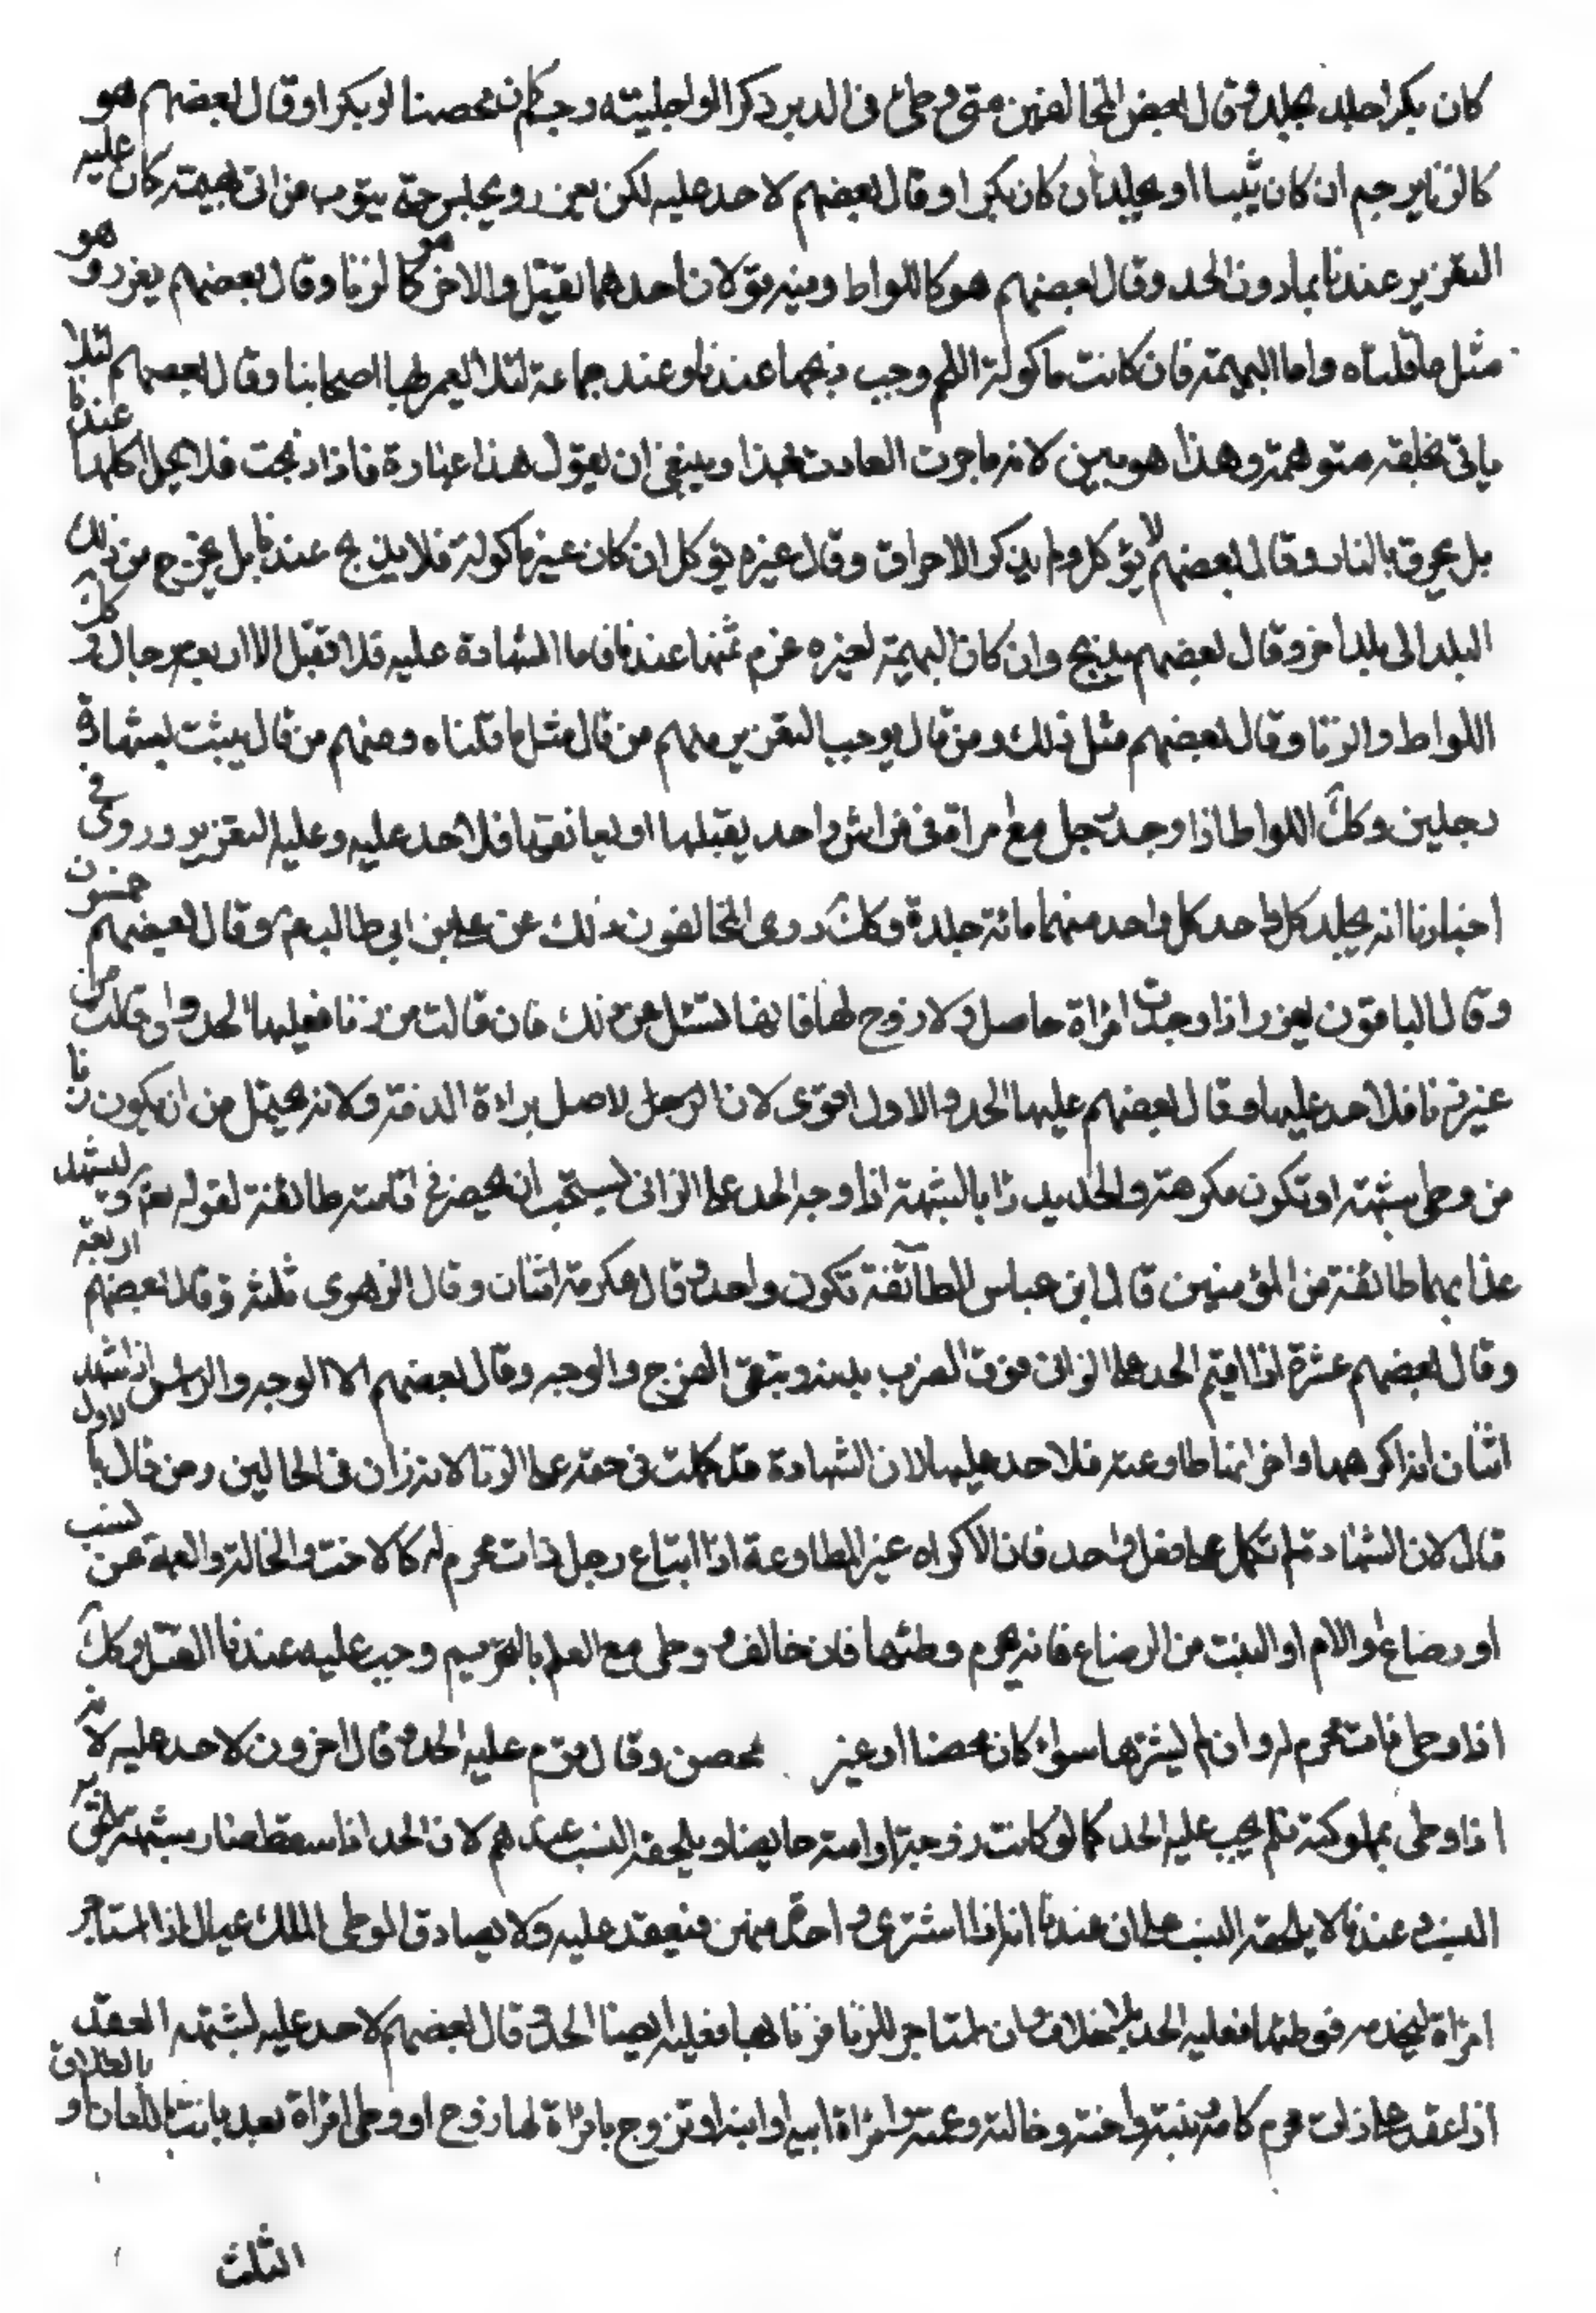 كان بكرا جلد بجلد وقال بعض المخالفين متى وطئ في الدبر ذكرا الواجليته رجم كان محصنا او بكرا وقال بعضهم هو
كالزنا يرجم ان كان ثيبا او يجلد ان كان بكرا وقال بعضهم لا حد عليه لكن يعزر و يحبس حتى يتوب من اتى بهيمة كان عليه
التعزير عندنا بمادون الحد وقال بعضهم هو كاللواط وفيه قولان احدهما يقتل والاخر هو كالزنا وقال بعضهم يعزر و هو
مثل ما قلناه واما البهيمة فان كانت ماكولة اللحم وجب ذبحها عندنا وعند جماعة لئلا اصحابنا وقال بعضهم لئلا
ياتي بخلقة متوهمة وهذا هو بين لانه ماجرت العادت بهذا وينبغي ان يقول هذا عبارة فاذا ذبحت فلا يحل اكلها عندنا
بل يحرق بالنار وقال بعضهم لا يؤكل ولم يذكر الاحراق وقال غيره يؤكل ان كان غير ماكولة فلا يذبح عندنا بل يخرج من ذلك
البلد الى بلد اخر وقال بعضهم يذبح وان كان البهيمة لغيره غرم ثمنها عندنا فاما الشهادة عليه فلا تقبل الا اربعة رجال وكك
اللواط والزنا وقال بعضهم مثل ذلك ومن قال يوجب التعزير منهم من قال مثل ما قلناه ومنهم من قال يثبت بشهادة
رجلين وكك اللواط اذا وجد رجل مع امراة في فراش واحد يقبلها او يعانقها فلا حد عليه وعليه التعزير وروي في
اخبارنا انه يجلد كل واحد كل واحد منهما مائة جلدة وكك روى المخالفون ذلك عن علي بن ابي طالب م وقال بعضهم خمسون
وقال الباقون يعزر اذا وجدت امراة حامل ولا زوج لها فانها تسئل عن ذلك فان قالت من زنا فعليها الحد وان قالت من
غير زنا فلا حد عليها وقال بعضهم عليها الحد والاول اقوى لان الرجل لاصل براءة الذمة ولانه يحتمل من ان يكون زنا
من وطى بشبهة او تكون مكرهة والحد يدرا بالشبهة اذا وجب الحد على الزاني يستحب ان يحضر اقامته طائفة لقوله تع وليشهد
عذابهما طائفة من المؤمنين قال ابن عباس الطائفة تكون واحدا وقال عكرمة اثنان وقال الزهري ثلثة وقال بعضهم اربعة
وقال بعضهم عشرة اذا اقيم الحد على الزاني فرق الضرب بدنه ويتقى الفرج والوجه وقال بعضهم الا الوجه والراس اذا شهد
اثنان انه اكرهها واخر انها طاوعته فلا حد عليها لان الشهادة قد كملت في حقه على الزنا لانه زان في الحالين ومن قال بالاول
قال لان الشهادة لم تكمل على فعل واحد فان الاكراه غير المطاوعة اذا ابتاع رجل ذات محرم له كالاخت والخالة والعمة من نسب
او رضاع والام او البنت من الرضاع فانه يحرم وطئها فان خالف و وطى مع العلم بالتحريم وجب عليه عندنا القتل وكك
اذا وطى ذات محرم له وان لم يشترها سواء كان محصنا او غير محصن وقال قوم عليه الحد وقال اخرون لا حد عليه لانه
اذا وطى بملوكته فلم يجب عليه الحد كما لو كانت زوجته او امته حايضا ويلحقه النسب عندهم لان الحد اذا سقط صار بشبهة يلحق به
النسب و عندنا لا يلحقه النسب على ان عندنا انه اذا اشترى واحدة منهن فينعتق عليه ولا يصادف الوطى الملك بحال اذا استاجر
امراة ليخدمه فوطئها فعليه الحد بلا خلاف وان استاجر للزنا فزنا بها فعليه ايضا الحد وقال بعضهم لا حد عليه لشبهة العقد
اذا عقد على ذات محرم كامه وبنته واخته وخالته وعمته وامراة ابيه او ابنه او تزوج بامراة لها زوج او وطى امراة بعد بانت باللعان او بالطلاق
الثلث